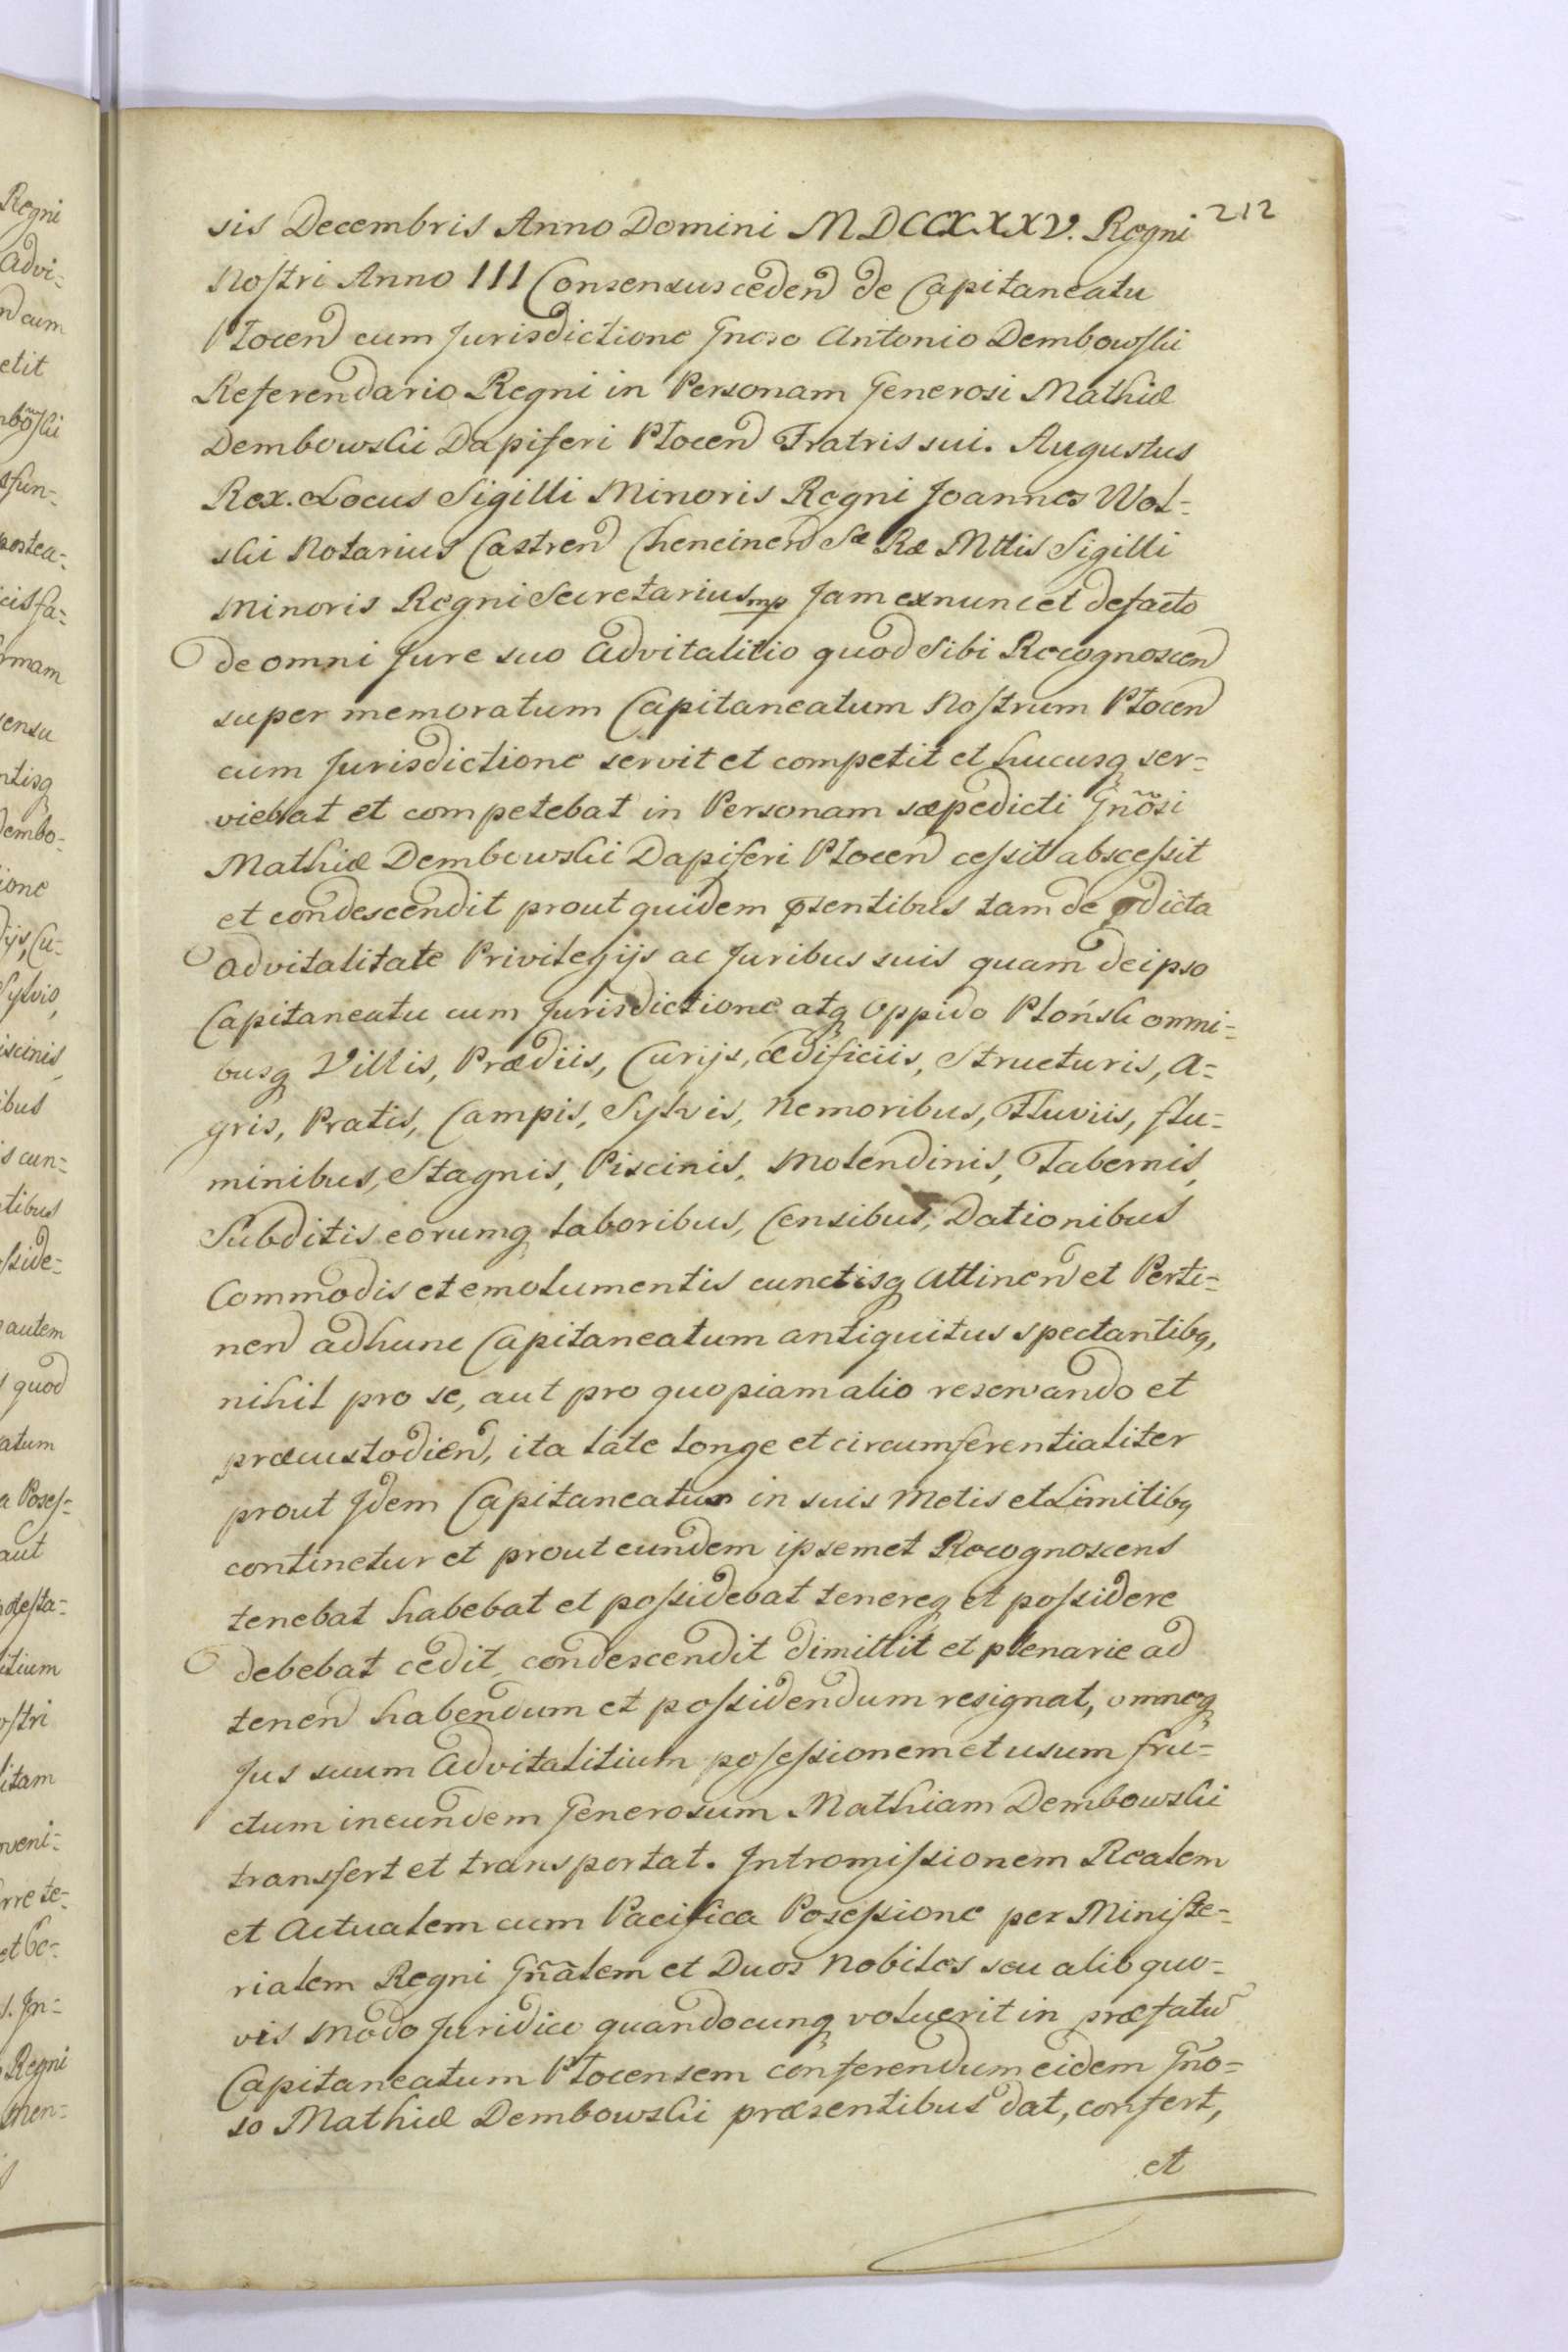 212
sis Decembris Anno Domini MDCCXXXV. Regni
Nostri Anno III Consensus ceden de Capitaneatu
Plocen cum Jurisdictione Gnoso Antonio Dembowski
Referendario Regni in Personam Generosi Mathiæ
Dembowski Dapiferi Plocen Fratris sui. Augustus
Rex. Locus Sigilli Minoris Regni Joannes Wol-
ski Notarius Castren Chencinen Sæ Ræ Mttis Sigilli
Minoris Regni Secretarius mp Jam ex nunc et de facto
de omni Jure suo Advitalitio quod Sibi Recognoscen
super memoratum Capitaneatum Nostrum Plocen
cum Jurisdictione servit et competit et hucusq ser-
viebat et competebat in Personam sæpedicti Gnõsi
Mathiæ Dembowski Dapiferi Plocen cessit abscessit
et condescendit prout quidem pसentibus tam de pdicta
advitalitate Privilegijs ac Juribus suis quam de ipso
Capitaneatu cum Jurisdictione atq Oppido Płońsk omni-
busq Villis, Prædiis, Curijs, ædificiis, Structuris, A-
gris, Pratis, Campis, Sylvis, Nemoribus, Fluviis, flu-
minibus, Stagnis, Piscinis, Molendinis, Tabernis,
Subditis eorumq laboribus, Censibus, Dationibus
Commodis et emolumentis cunctisq Attinen et Perti-
nen ad hunc Capitaneatum antiquitus spectantibq,
nihil pro se, aut pro quopiam alio reservando et
præcustodien, ita late longe et circumferentialiter
prout Idem Capitaneatus in suis Metis et Limitibq
continetur et prout eundem ipsemet Recognoscens
tenebat habebat et possidebat tenereq et possidere
debebat cedit, condescendit dimittit et plenarie ad
tenen habendum et possidendum resignat, omneq
Jus suum Advitalitium posessionem et usum fru-
ctum in eundem Generosum Mathiam Dembowski
transfert et transportat. Intromissionem Realem
et Actualem cum Pacifica Posessione per Ministe-
rialem Regni Gñalem et Duos Nobiles seu alio quo-
vis modo Juridico quandocunq voluerit in præfatũ
Capitaneatum Plocensem conferendum eidem Gño-
so Mathiæ Dembowski præsentibus dat, confert,
et